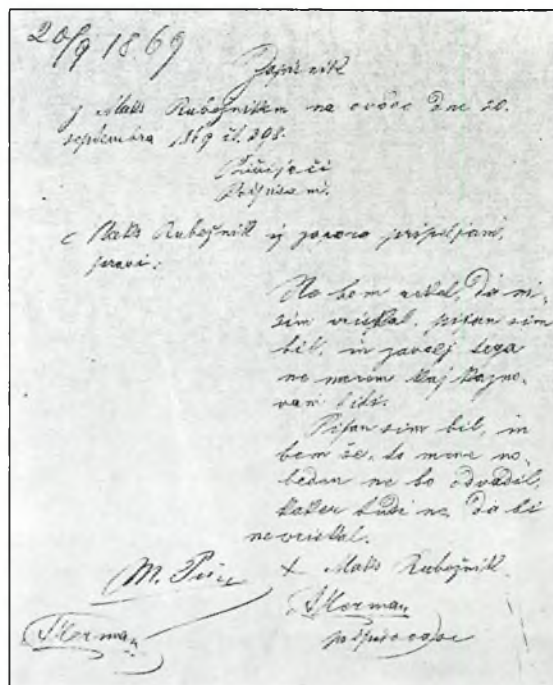 20/9 1869
Zapisnik
z Maks Rubežnikem na ovadbo dne 20.
septembra 1869 čl. 398.
Pričujoči
Podpisani.
Maks Rubežnik iz zapora pripeljani,
pravi:
Na bom rekal, da ni-
sim vriskal, pijan sim
bil, in zavolj tega
ne morem kaj kazno-
van biti.
Pijan sim bil, in
bom še, to mene no-
beden ne bo odvadil,
kaker tudi ne, da bi
ne vriskal.
+ Maks Rubežnik
M.
A Kerman